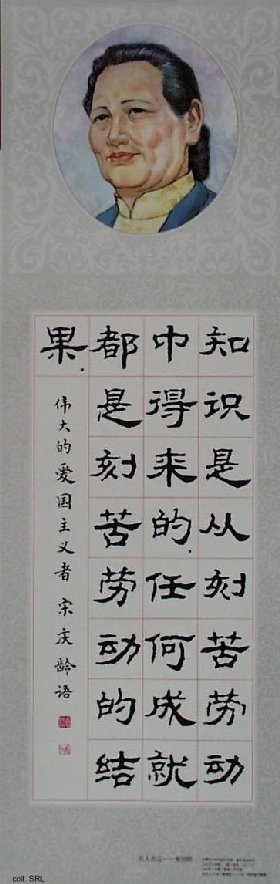 知识是从刻苦劳动
中得来的.任何成就
都是刻苦劳动的结
果.
伟大的爱国主义者 宋庆龄语
名人名言——宋庆龄
coll. SRL